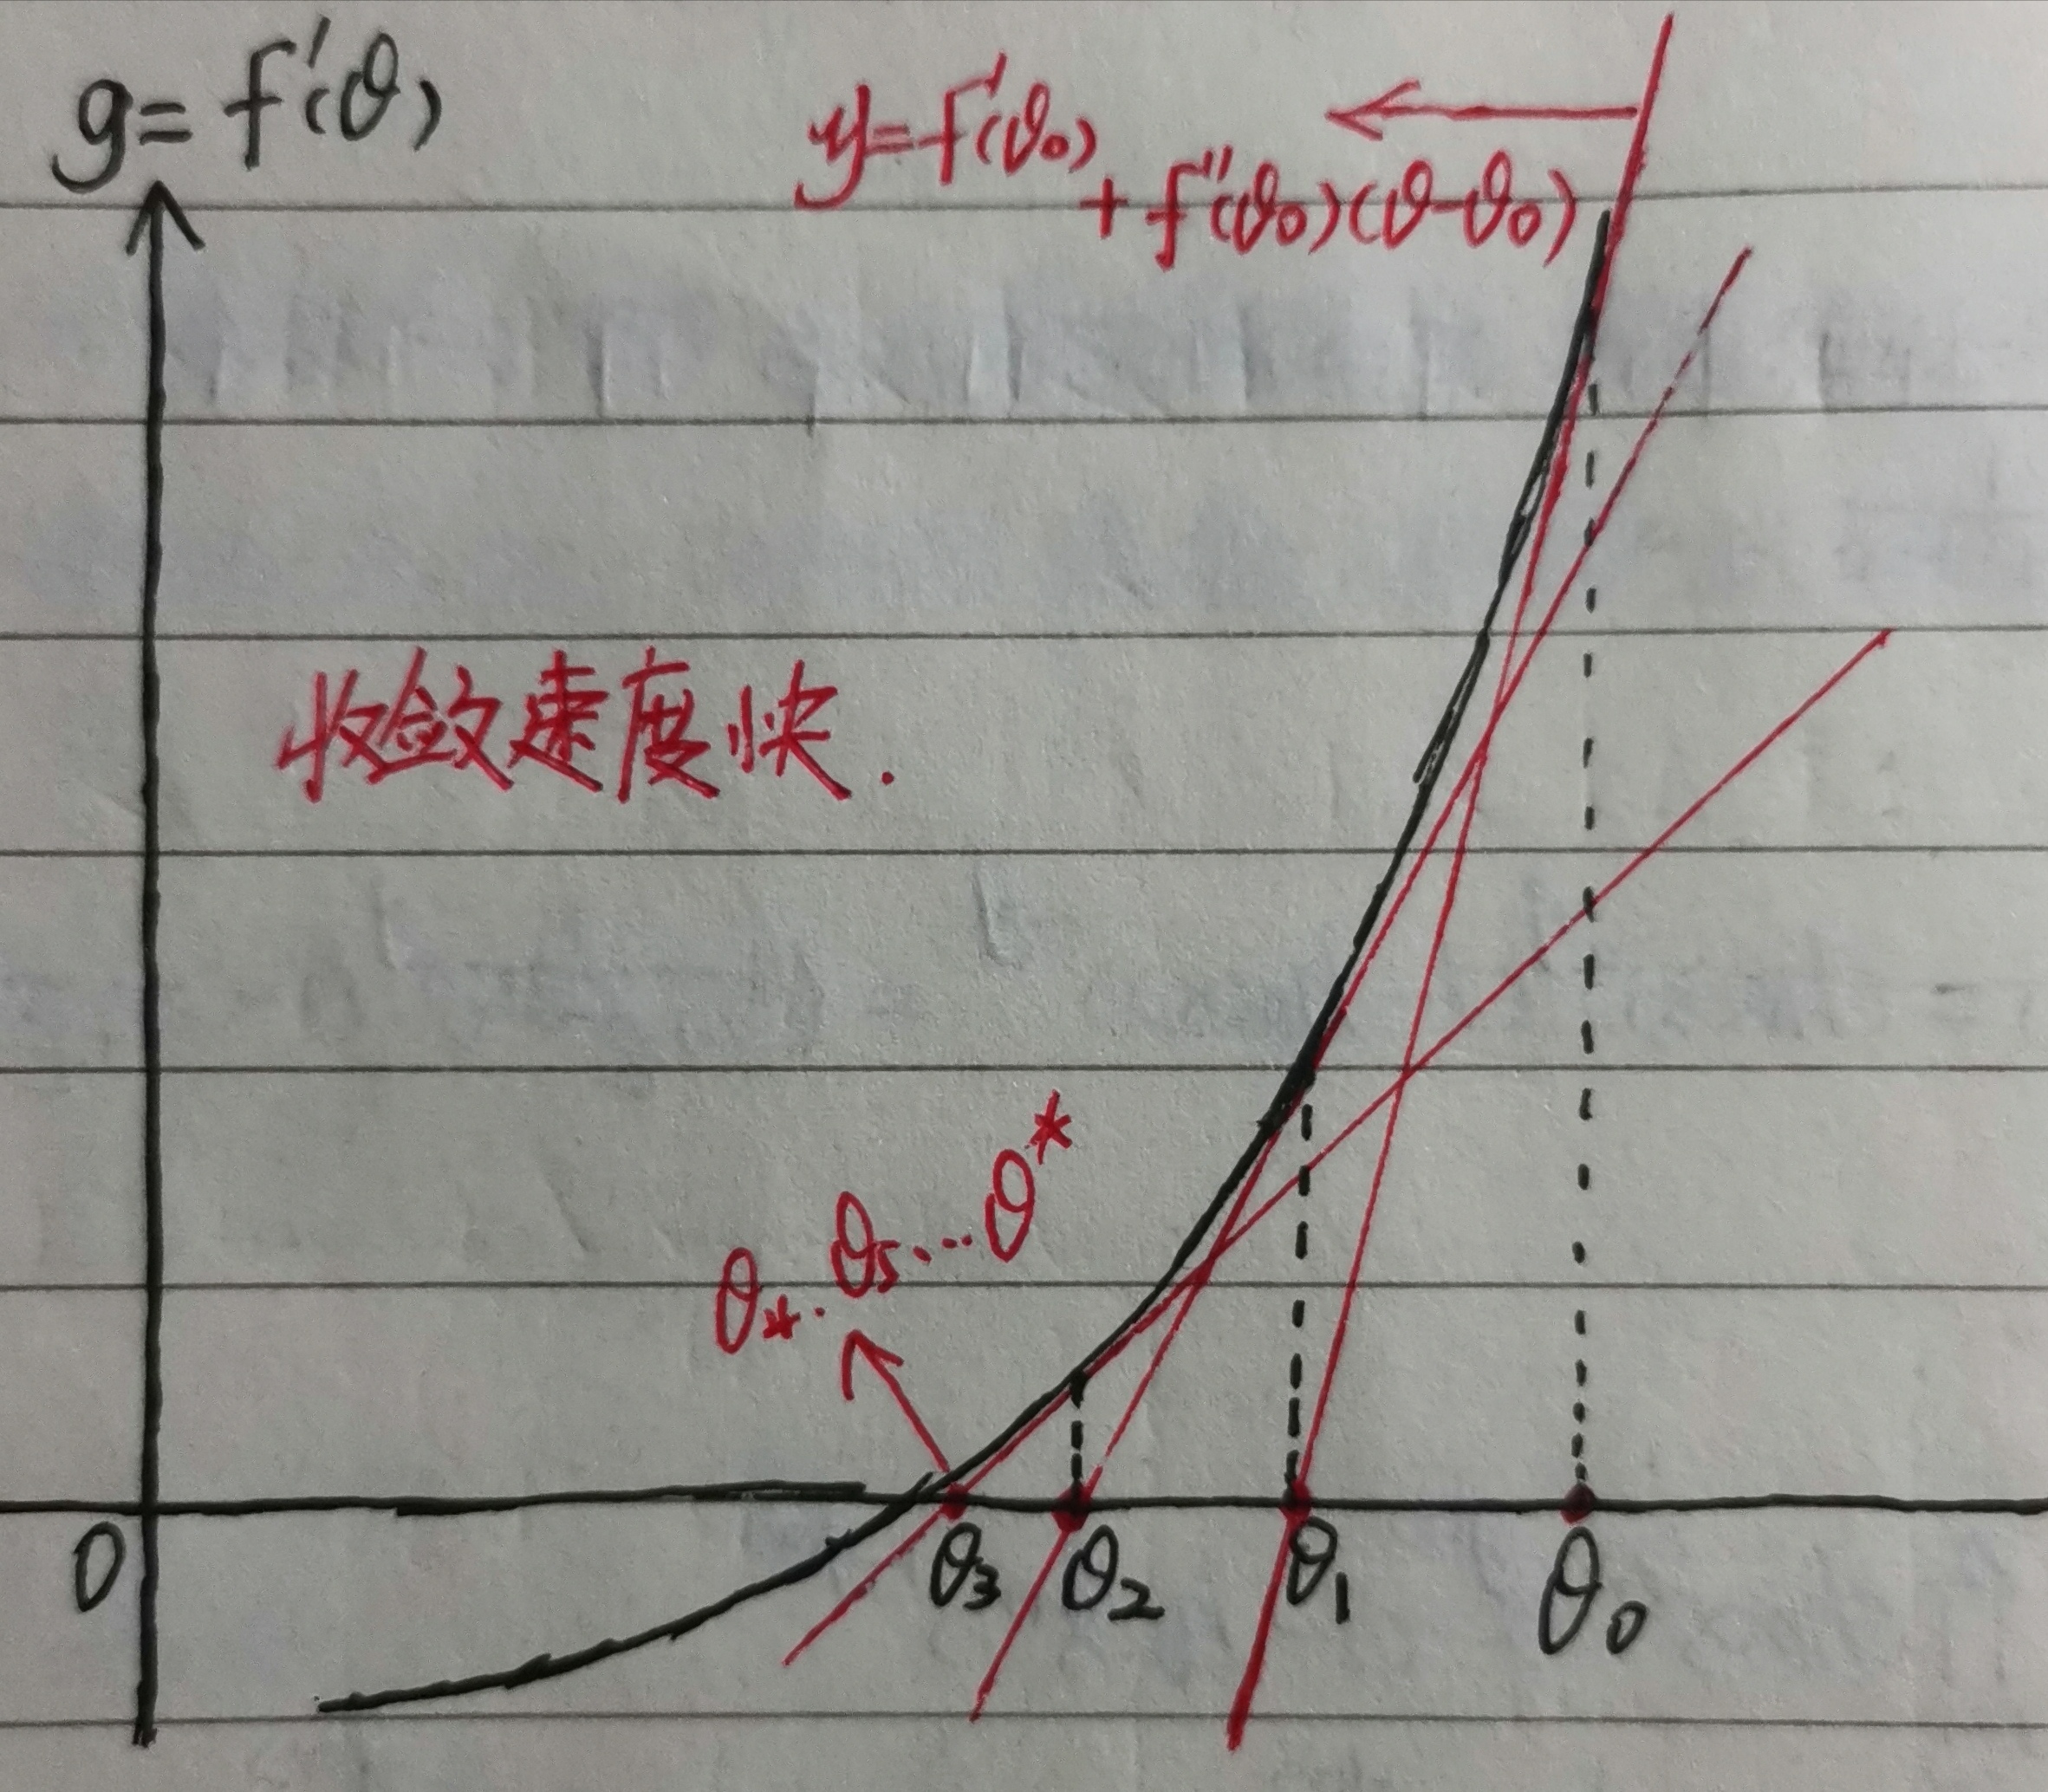 g = f'(θ)
y = f'(θ₀)
+ f''(θ₀)(θ-θ₀)
收敛速度快.
θ₄. θ₅...θ*
0 θ₃ θ₂ θ₁ θ₀